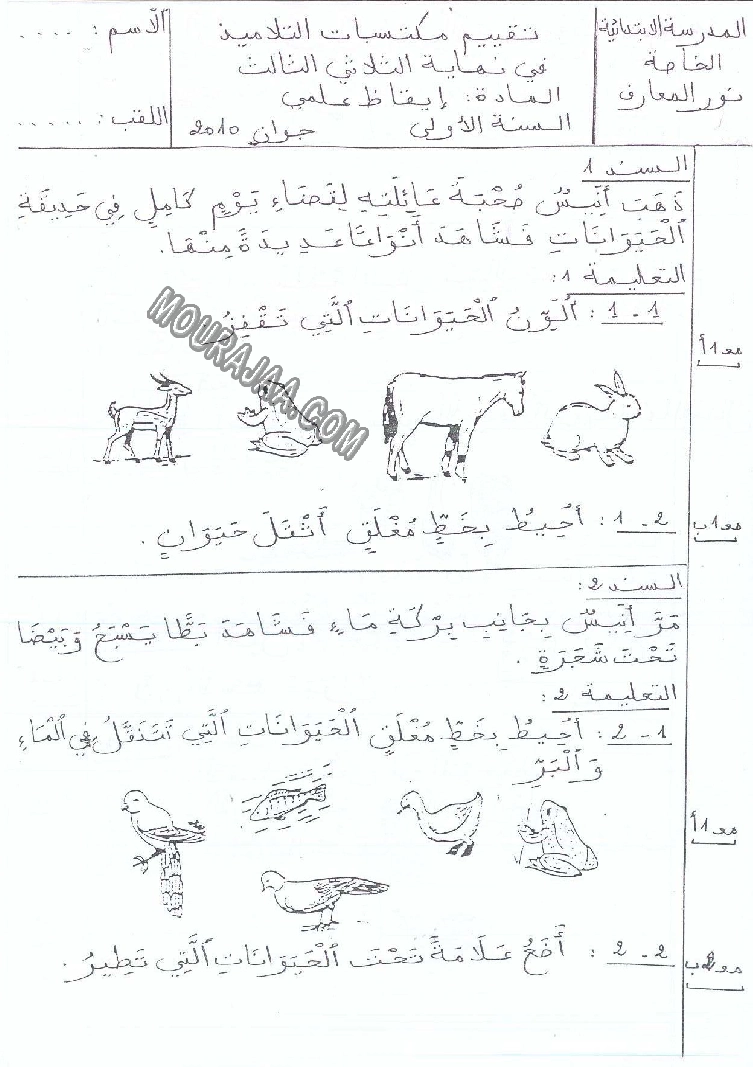 المدرسة الابتدائية
الخاصة
نور المعارف
تقييم مكتسبات التلاميذ
في نهاية الثلاثي الثالث
المادة: إيقاظ علمي
السنة الأولى جوان 2010
الاسم: ....
اللقب: .....
السند 1
ذَهَبَ أَنِيسٌ صُحْبَةَ عَائِلَتِهِ لِقَضَاءِ يَوْمٍ كَامِلٍ فِي حَدِيقَةِ
الْحَيَوَانَاتِ فَشَاهَدَ أَنْوَاعًا عَدِيدَةً مِنْهَا.
التعليمة 1:
1 - 1 : أُلَوِّنُ الْحَيَوَانَاتِ الَّتِي تَقْفِزُ.
مع 1 أ
MOURAJAA.COM
1 - 2 : أُحِيطُ بِخَطٍّ مُغْلَقٍ أَثْقَلَ حَيَوَانٍ.
مع 1 ب
السند 2:
مَرَّ أَنِيسٌ بِجَانِبِ بِرْكَةِ مَاءٍ فَشَاهَدَ بَطًّا يَسْبَحُ وَبَيْضًا
تَحْتَ شَجَرَةٍ.
التعليمة 2:
2 - 1 : أُحِيطُ بِخَطٍّ مُغْلَقٍ الْحَيَوَانَاتِ الَّتِي تَتَنَقَّلُ فِي الْمَاءِ
وَالْبَرِّ
مع 1 أ
2 - 2 : أَضَعُ عَلَامَةً تَحْتَ الْحَيَوَانَاتِ الَّتِي تَطِيرُ.